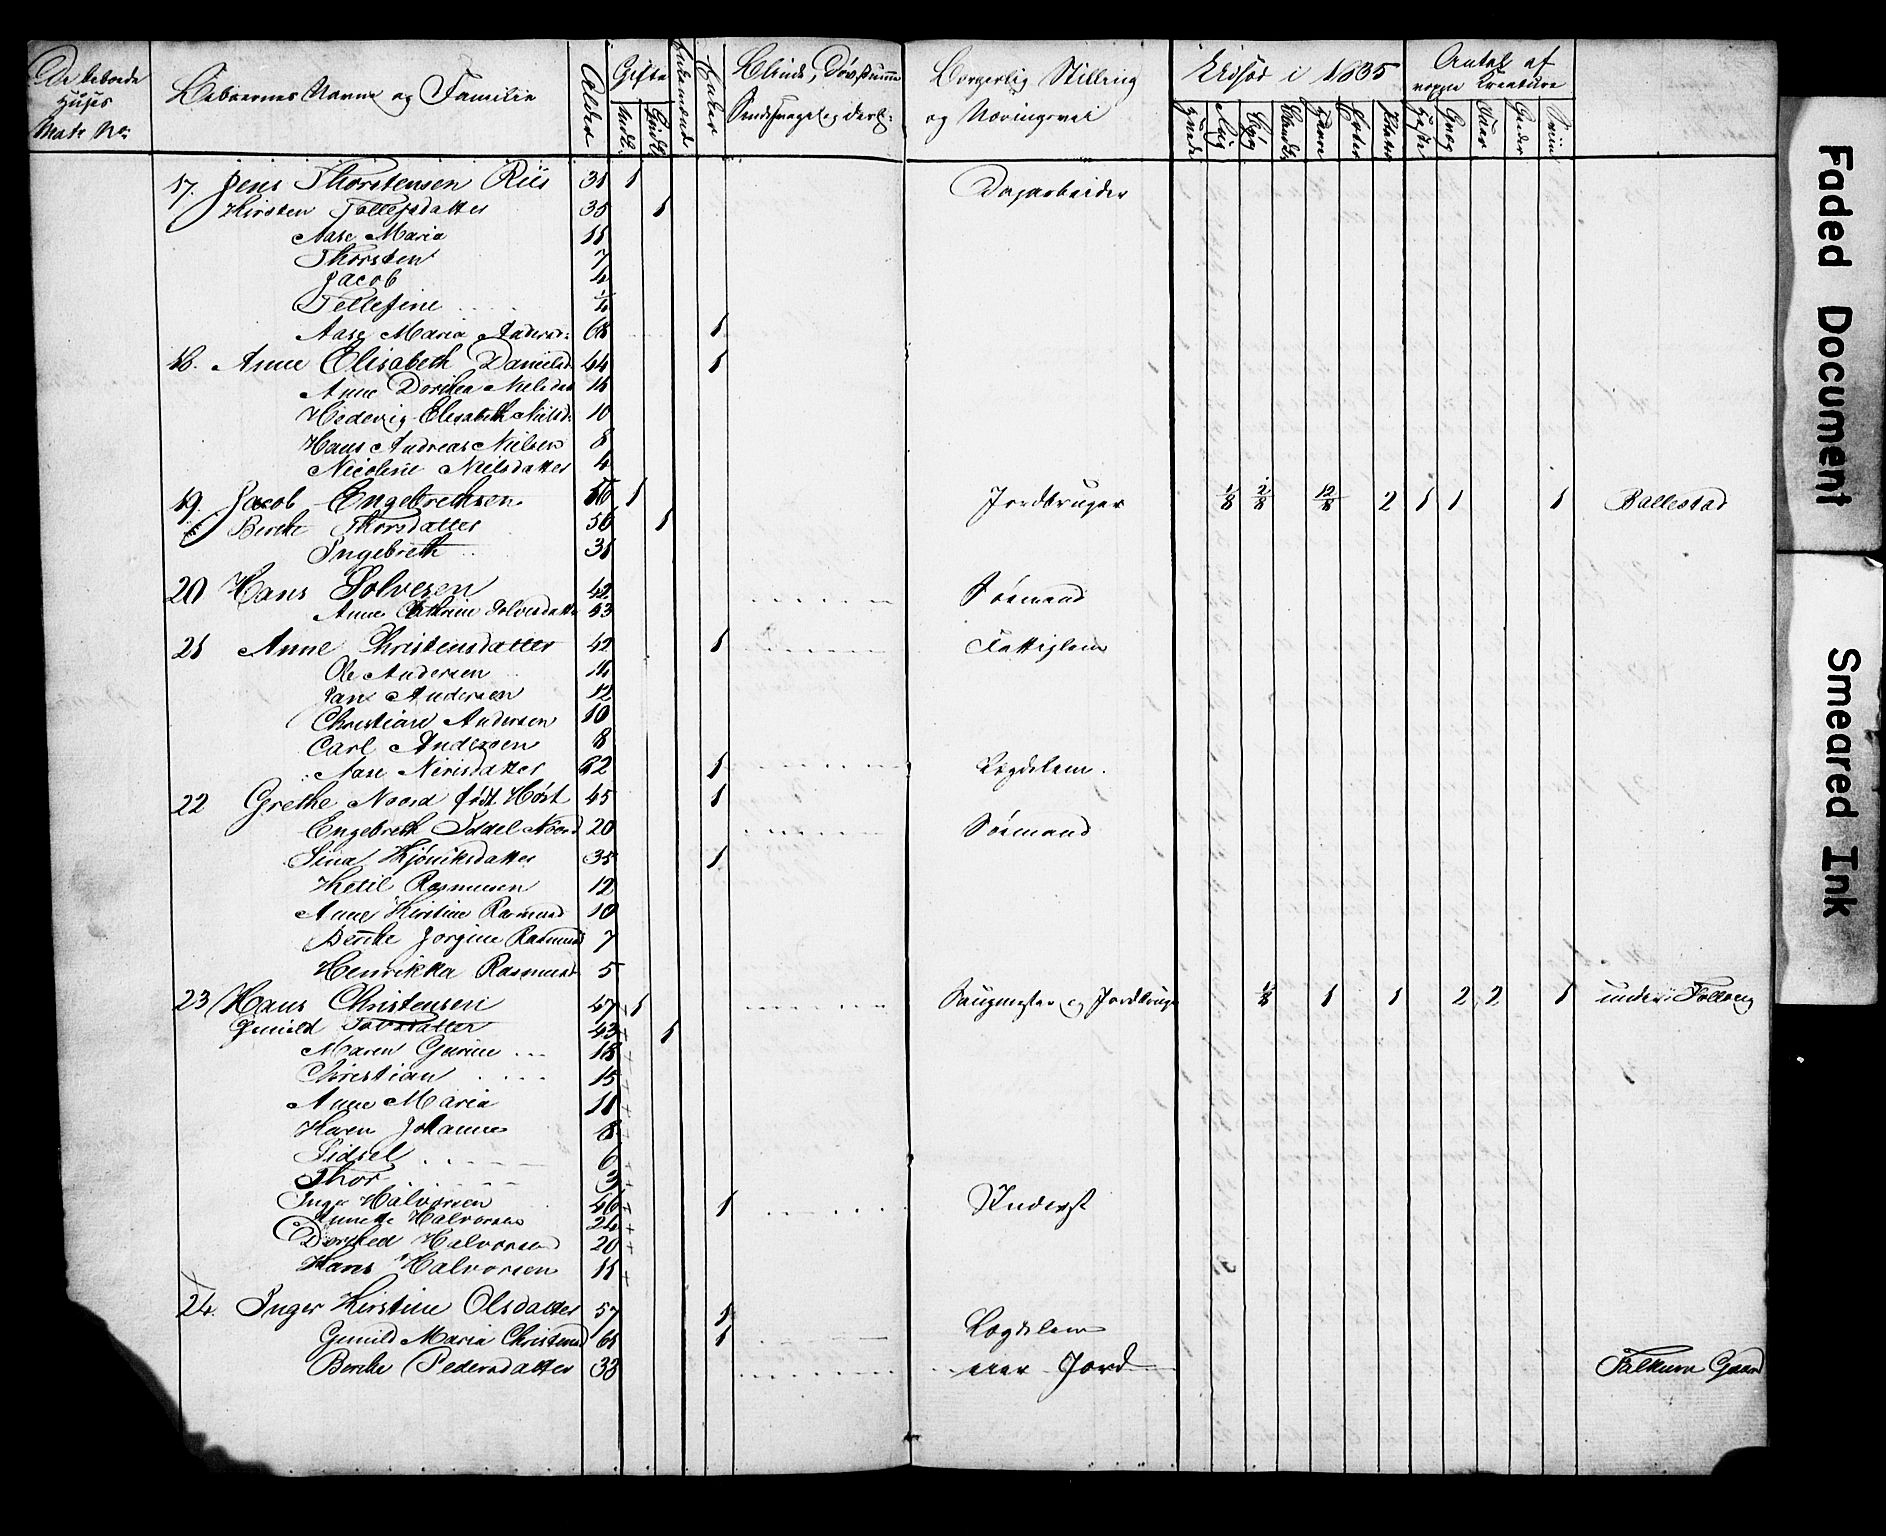 De beboede Huses Matr No:
Beboernes Navne og Familie
Alder
Gifte
Enkemænd
Enker
Blinde, Døvstumme
Sindssvage og desl:
Borgerlig Stilling
og Næringsvei
Udsæd i 1835
Antal af
voxne Kreature
Hvede Rug Byg Blandk Havre Erter Potater Heste Qvæg Faar Geder Sviin
17. Jens Thorstensen Riis 31 1 Dagarbeider
Kirsten Tollefsdatter 35 1
Aase Maria 11
Thorsten 7
Jacob 4
Tellefine
Aase Maria Andersd: 68 1
18. Anne Elisabeth Danielsd 44 1
Anne Dorthea Nielsdat 14
Hedevig Elisabeth Nielsd: 10
Hans Andreas Nielsen 8
Nicoline Nielsdatter 4
19. Jacob Engebrethsen 56 1 Jordbruger 1/8 2/8 12/8 2 1 1 1 Ballestad
Berthe Thorsdatter 56 1
Ingebreth 31
20 Hans Solvesen 42 Sømand
Anne Cathrine Solvesdatte 53
21 Anne Christensdatter 42 1 Fattiglem
Ole Andersen 14
Jan Andersen 12
Christiane Andersen 10
Carl Andersen 8
Aase Nerisdatter 62 1 Lægdslem.
22 Grethe Noord født Høst 45 1
Engebreth Iddel Noord 20 Sømand
Sina Kjøniksdatter 35 1
Ketil Rasmusen 12
Anne Kirstine Rasmusd 10
Berthe Jorgine Rasmusd 7
Henrikka Rasmusd 5
23 Hans Christensen 47 1 Saugmester og Jordbruger 1/8 1 1 2 2 1 under Follvig
Gunild Torsdatter 43 1
Maren Gurine 18
Christian 15
Anne Maria 11
Karen Johanne 8
Sidsel 6
Thor 3
Inger Halvorsen 46 1 Inderst
Annette Halvorsen 24
Dorthea Halvorsen 20
Hans Halvorsen 11
24. Inger Kirstine Olsdatter 57 1
Gunild Maria Christensd 61 1 Lægdslem
Berthe Pedersdatter 38 eier Jord Falkum Gaard
Faded Document
Smeared Ink